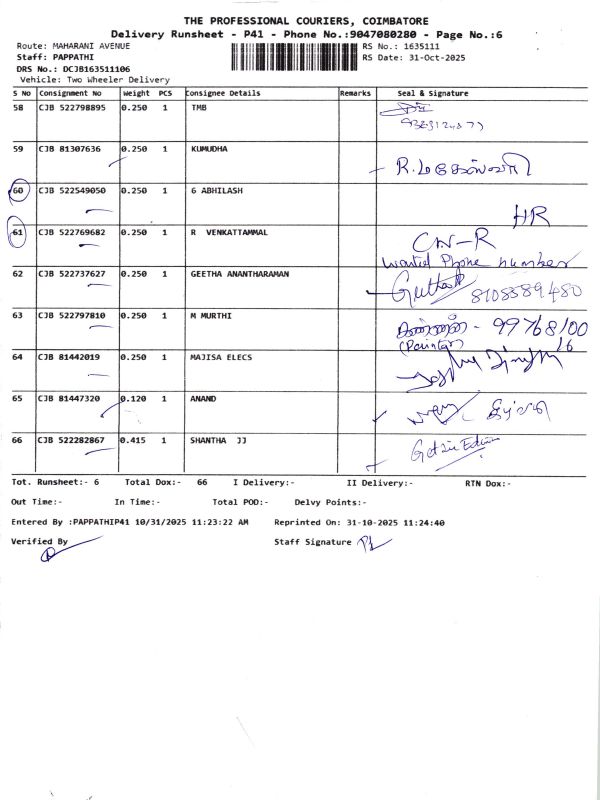 THE PROFESSIONAL COURIERS, COIMBATORE
Delivery Runsheet - P41 - Phone No.:9047080280 - Page No.:6
Route: MAHARANI AVENUE
RS No.: 1635111
Staff: PAPPATHI
RS Date: 31-Oct-2025
DRS No.: DCJB163511106
Vehicle: Two Wheeler Delivery
S No Consignment No Weight PCS Consignee Details Remarks Seal & Signature
58 CJB 522798895 0.250 1 TMB
59 CJB 81307636 0.250 1 KUMUDHA
R.
60 CJB 522549050 0.250 1 G ABHILASH
HR
61 CJB 522769682 0.250 1 R VENKATTAMMAL
CN-R
wanted Phone number
62 CJB 522737627 0.250 1 GEETHA ANANTHARAMAN
8108389480
63 CJB 522797810 0.250 1 M MURTHI
- 99768100
(Painter) 16
64 CJB 81442019 0.250 1 MAJISA ELECS
65 CJB 81447320 0.120 1 ANAND
66 CJB 522282867 0.415 1 SHANTHA JJ
Tot. Runsheet:- 6 Total Dox:- 66 I Delivery:- II Delivery:- RTN Dox:-
Out Time:- In Time:- Total POD:- Delvy Points:-
Entered By :PAPPATHIP41 10/31/2025 11:23:22 AM Reprinted On: 31-10-2025 11:24:40
Verified By Staff Signature